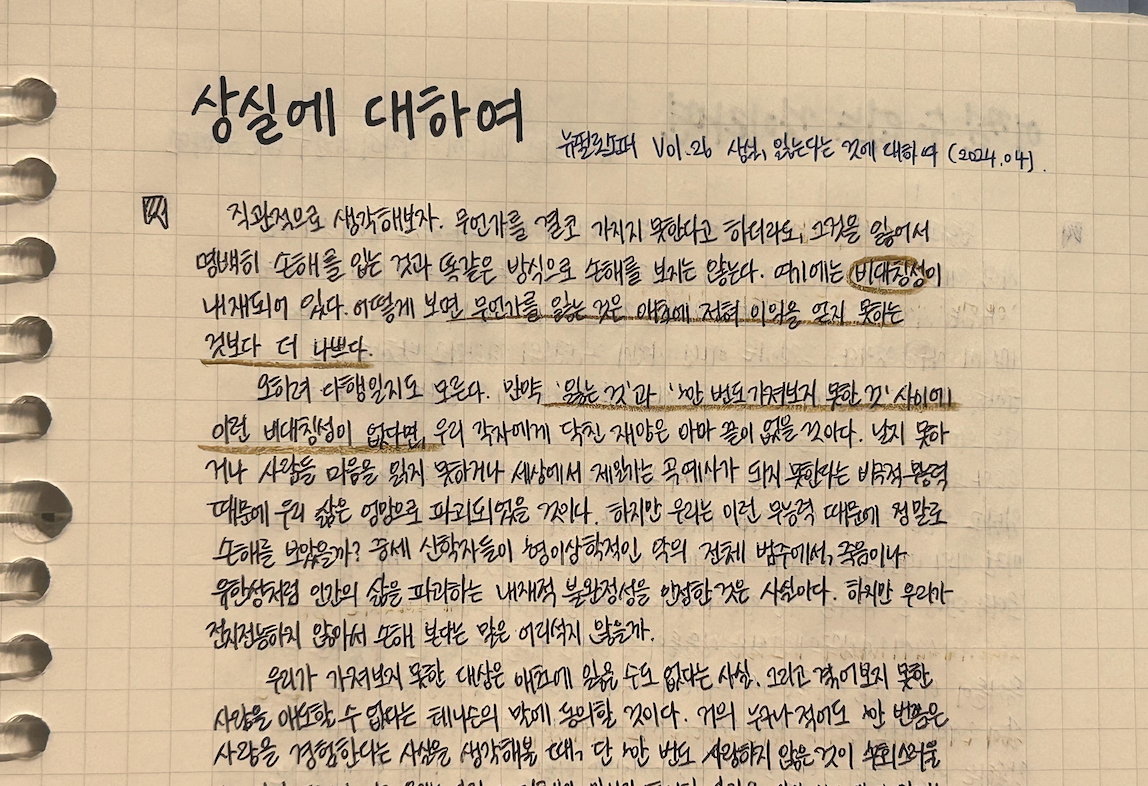 상실에 대하여
뉴필로소퍼 Vol.26 상실, 잃는다는 것에 대하여 (2024.04).
직관적으로 생각해보자. 무언가를 결코 가지지 못한다고 하더라도, 그것을 잃어서
명백히 손해를 입는 것과 똑같은 방식으로 손해를 보지는 않는다. 여기에는 비대칭성이
내재되어 있다. 어떻게 보면 무언가를 잃는 것은 애초에 전혀 이익을 얻지 못하는
것보다 더 나쁘다.
오히려 다행일지도 모른다. 만약 '잃는 것'과 '한 번도 가져보지 못한 것' 사이에
이런 비대칭성이 없다면, 우리 각자에게 닥친 재앙은 아마 끝이 없을 것이다. 날지 못하
거나 사람들 마음을 읽지 못하거나 세상에서 제일가는 곡예사가 되지 못한다는 비극적 무능력
때문에 우리 삶은 엉망으로 파괴되었을 것이다. 하지만 우리는 이런 무능력 때문에 정말로
손해를 보았을까? 중세 신학자들이 형이상학적인 악의 전체 범주에서, 죽음이나
유한성처럼 인간의 삶을 파괴하는 내재적 불완정성을 인정한 것은 사실이다. 하지만 우리가
전지전능하지 않아서 손해 본다는 말은 어리석지 않을까.
우리가 가져보지 못한 대상은 애초에 잃을 수도 없다는 사실. 그리고 겪어보지 못한
사랑을 애도할 수 없다는 테니슨의 말에 동의할 것이다. 거의 누구나 적어도 한 번쯤은
사랑을 경험한다는 사실을 생각해볼 때, 단 한 번도 사랑하지 않은 것이 후회스러울